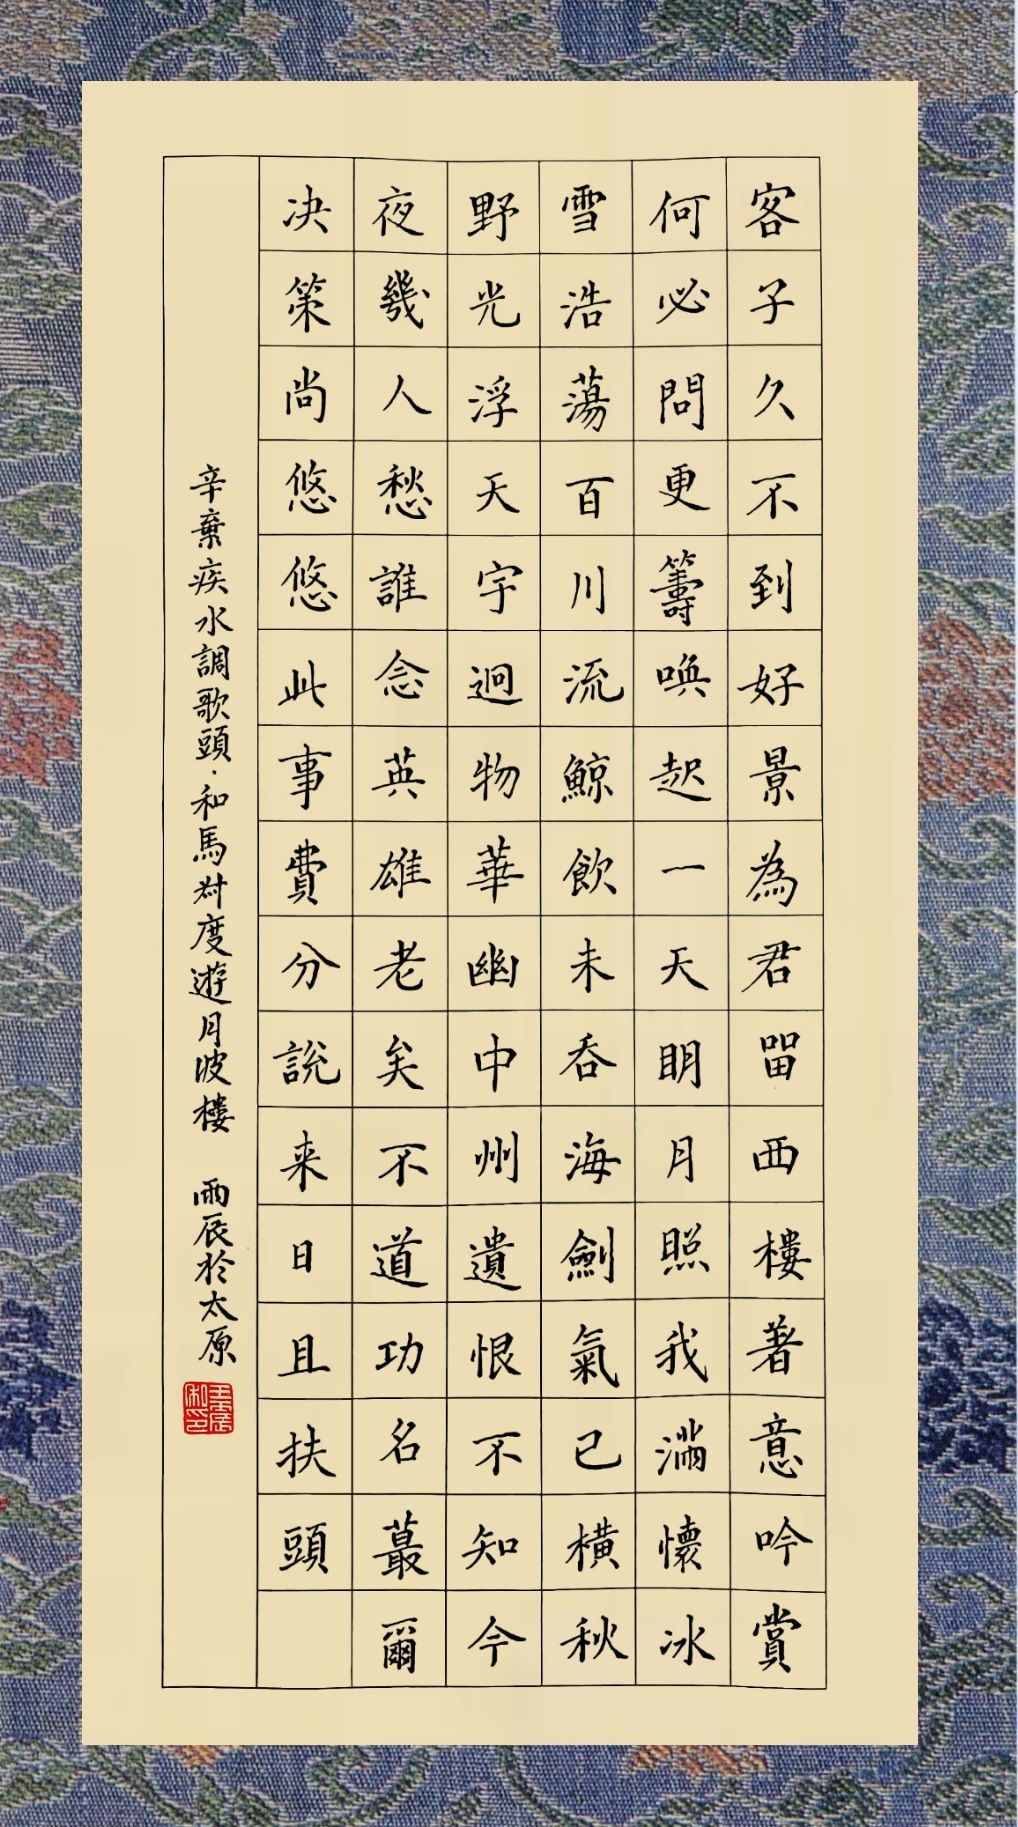 客子久不到好景為君畱西樓著意吟賞
何必問更籌喚起一天朙月照我滿懷冰
雪浩蕩百川流鯨飲未吞海劍氣已橫秋
野光浮天宇迥物華幽中州遺恨不知今
夜幾人愁誰念英雄老矣不道功名蕞爾
决策尚悠悠此事費分説来日且扶頭
辛棄疾水調歌頭·和馬尌度遊月波樓 丙辰於太原